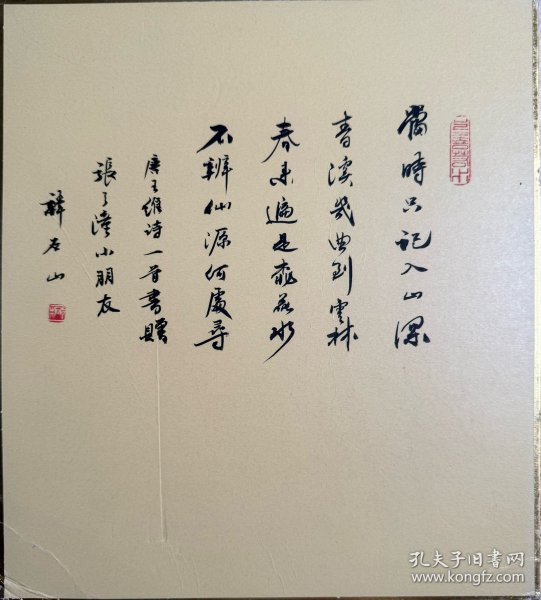 當時只記入山深
青溪幾曲到雲林
春來遍是桃花水
不辨仙源何處尋
唐王維诗一首書贈
張了澪小朋友
薛石山
孔夫子旧书网
www.kongfz.com